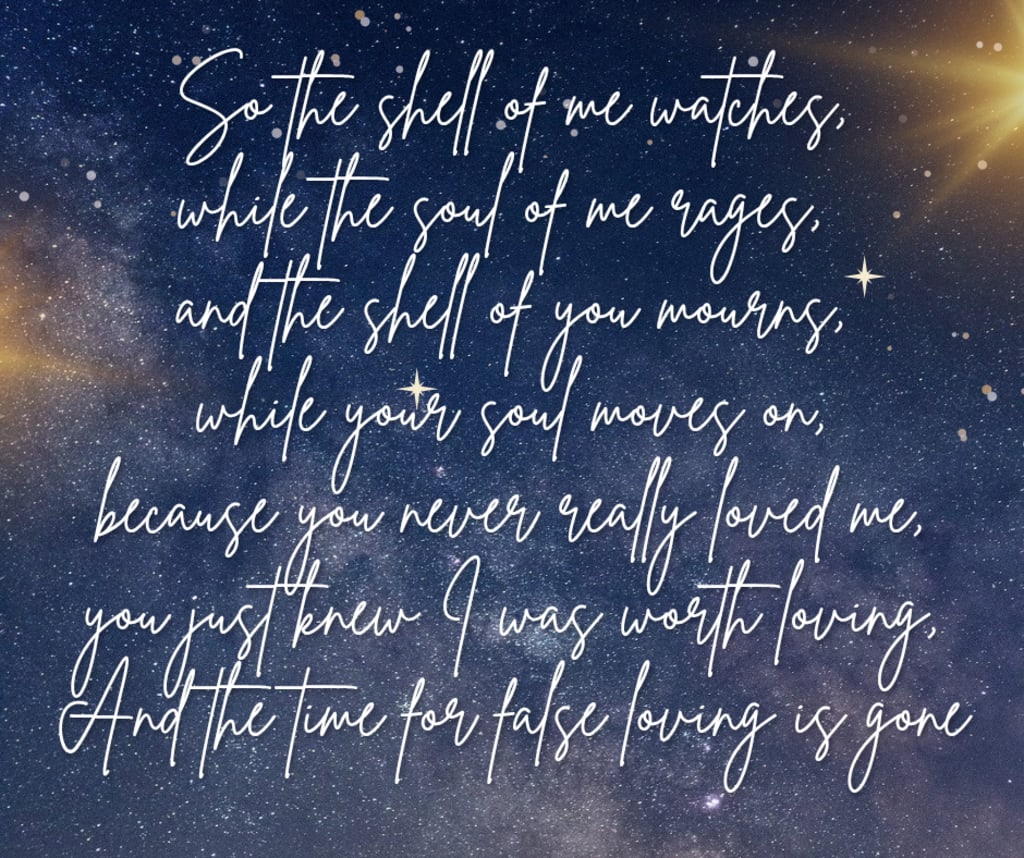 So the shell of me watches,
while the soul of me rages,
and the shell of you mourns,
while your soul moves on,
because you never really loved me,
you just knew I was worth loving,
And the time for false loving is gone